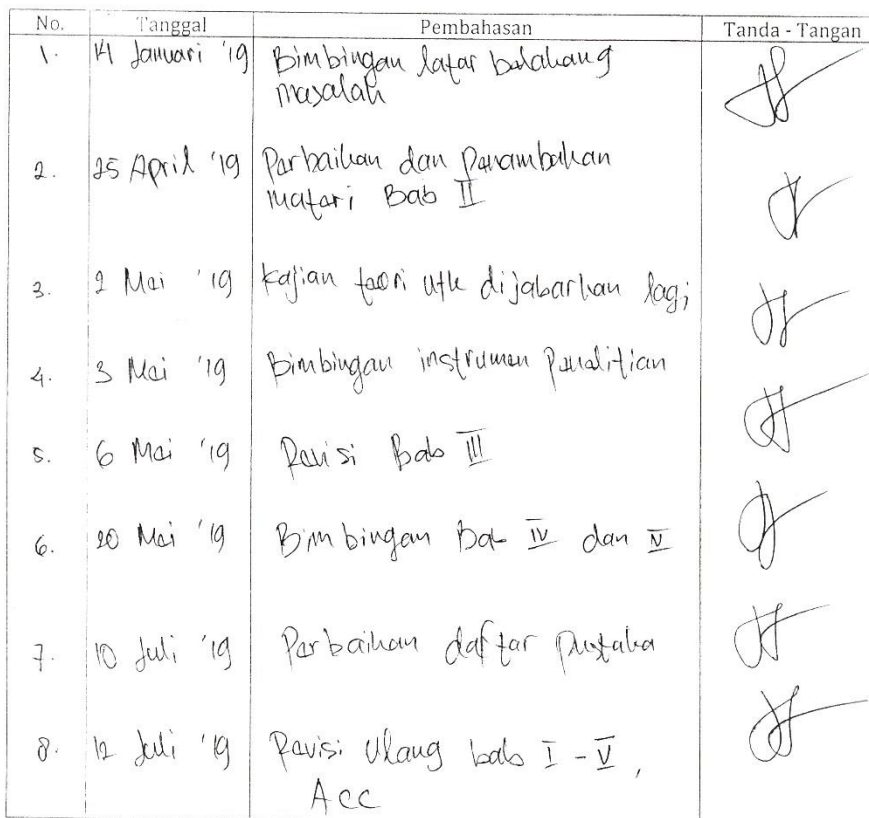 No. Tanggal Pembahasan Tanda - Tangan
1. 14 Januari '19 Bimbingan latar belakang
masalah
2. 25 April '19 Perbaikan dan Penambahan
materi Bab II
3. 2 Mei '19 Kajian teori utk dijabarkan lagi
4. 3 Mei '19 Bimbingan instrumen Penelitian
5. 6 Mei '19 Revisi Bab III
6. 20 Mei '19 Bimbingan Bab IV dan V
7. 10 Juli '19 Perbaikan daftar pustaka
8. 12 Juli '19 Revisi Ulang bab I - V,
Acc